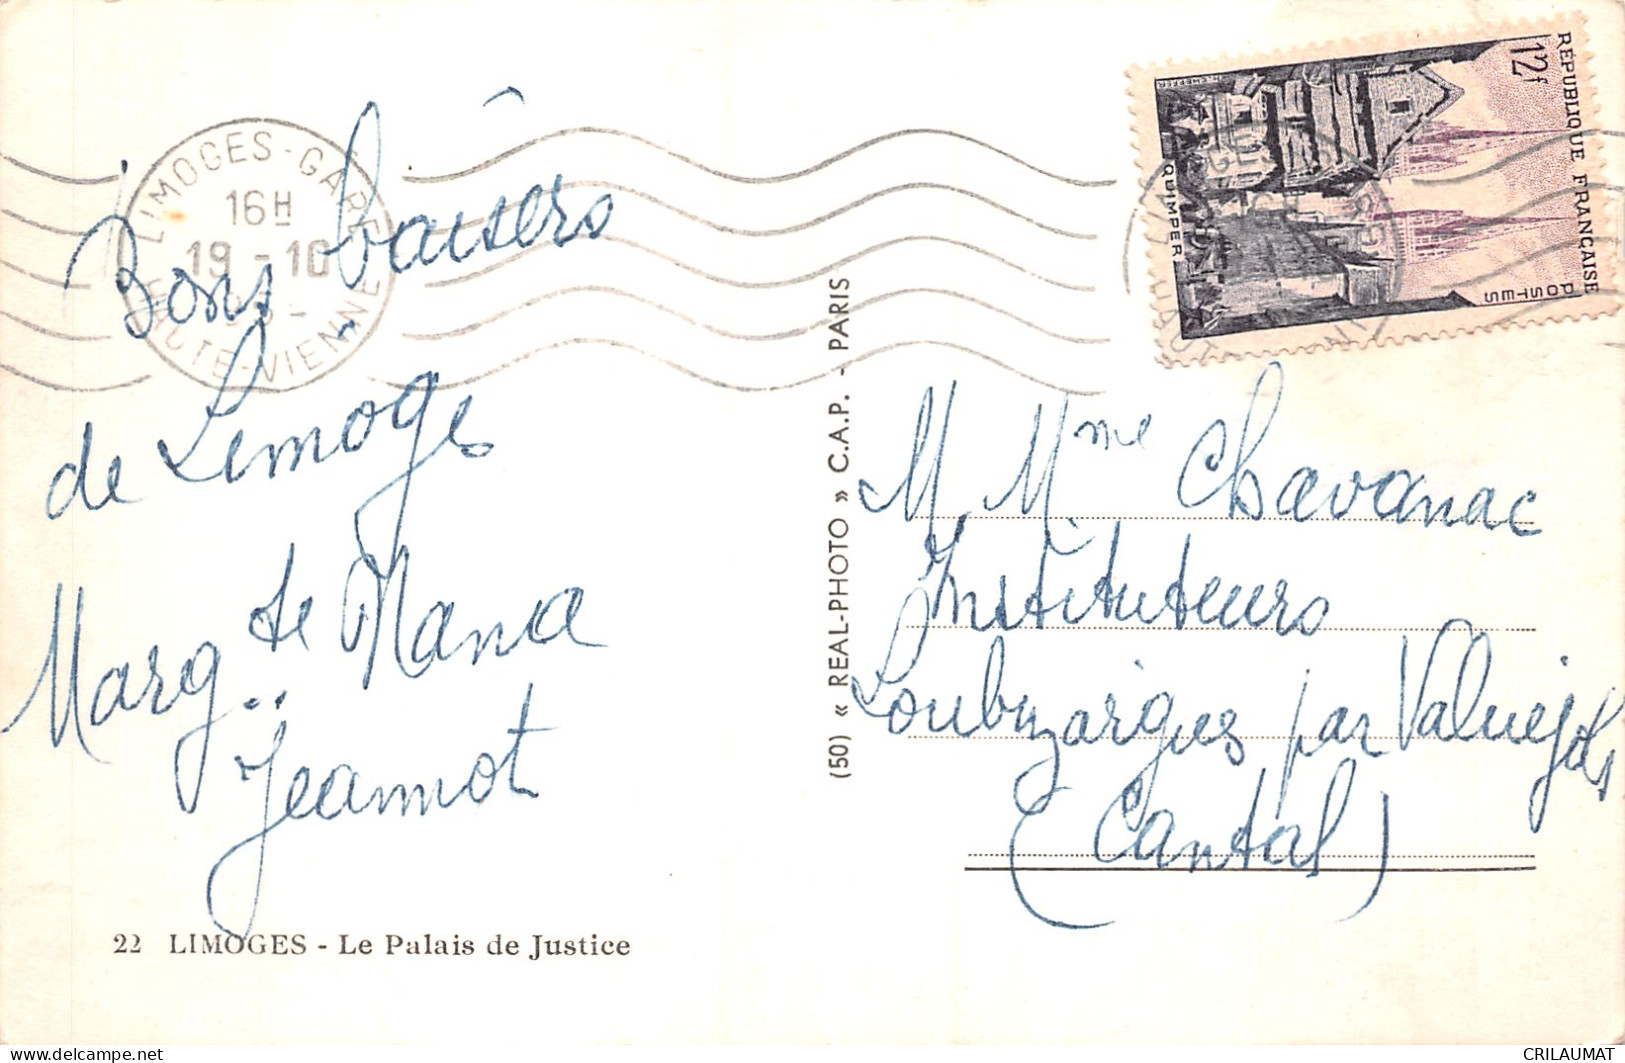 LIMOGES-GARE
16H
19-10
HAUTE-VIENNE
Bons baisers
de Limoges
Marg.te Nana
Jeannot
22 LIMOGES - Le Palais de Justice
(50) « REAL-PHOTO » C.A.P. - PARIS
RÉPUBLIQUE FRANÇAISE
12f
POSTES
QUIMPER
M. Mme Chavanac
Instituteurs
Loubizargues par Valuejols
(Cantal)
CRILAUMAT